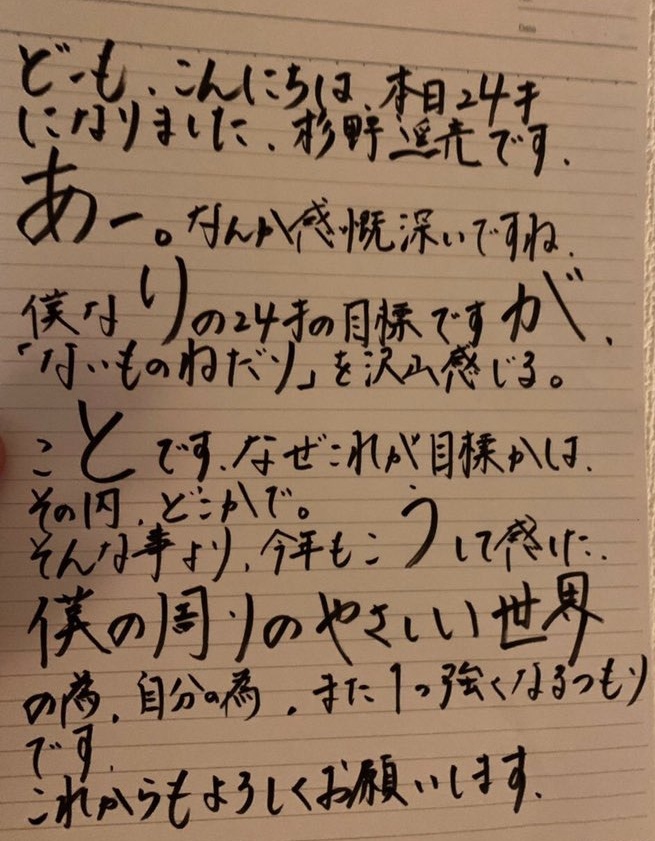 どーも、こんにちは、本日24才
になりました、杉野遥亮です、
あー。なんか感慨深いですね、
僕なりの24才の目標ですが、
「ないものねだり」を沢山感じる。
ことです、なぜこれが目標かは、
その内、どこかで。
そんな事より、今年もこうして感じた、
僕の周りのやさしい世界
の為、自分の為、また1つ強くなるつもり
です、
これからもよろしくお願いします、